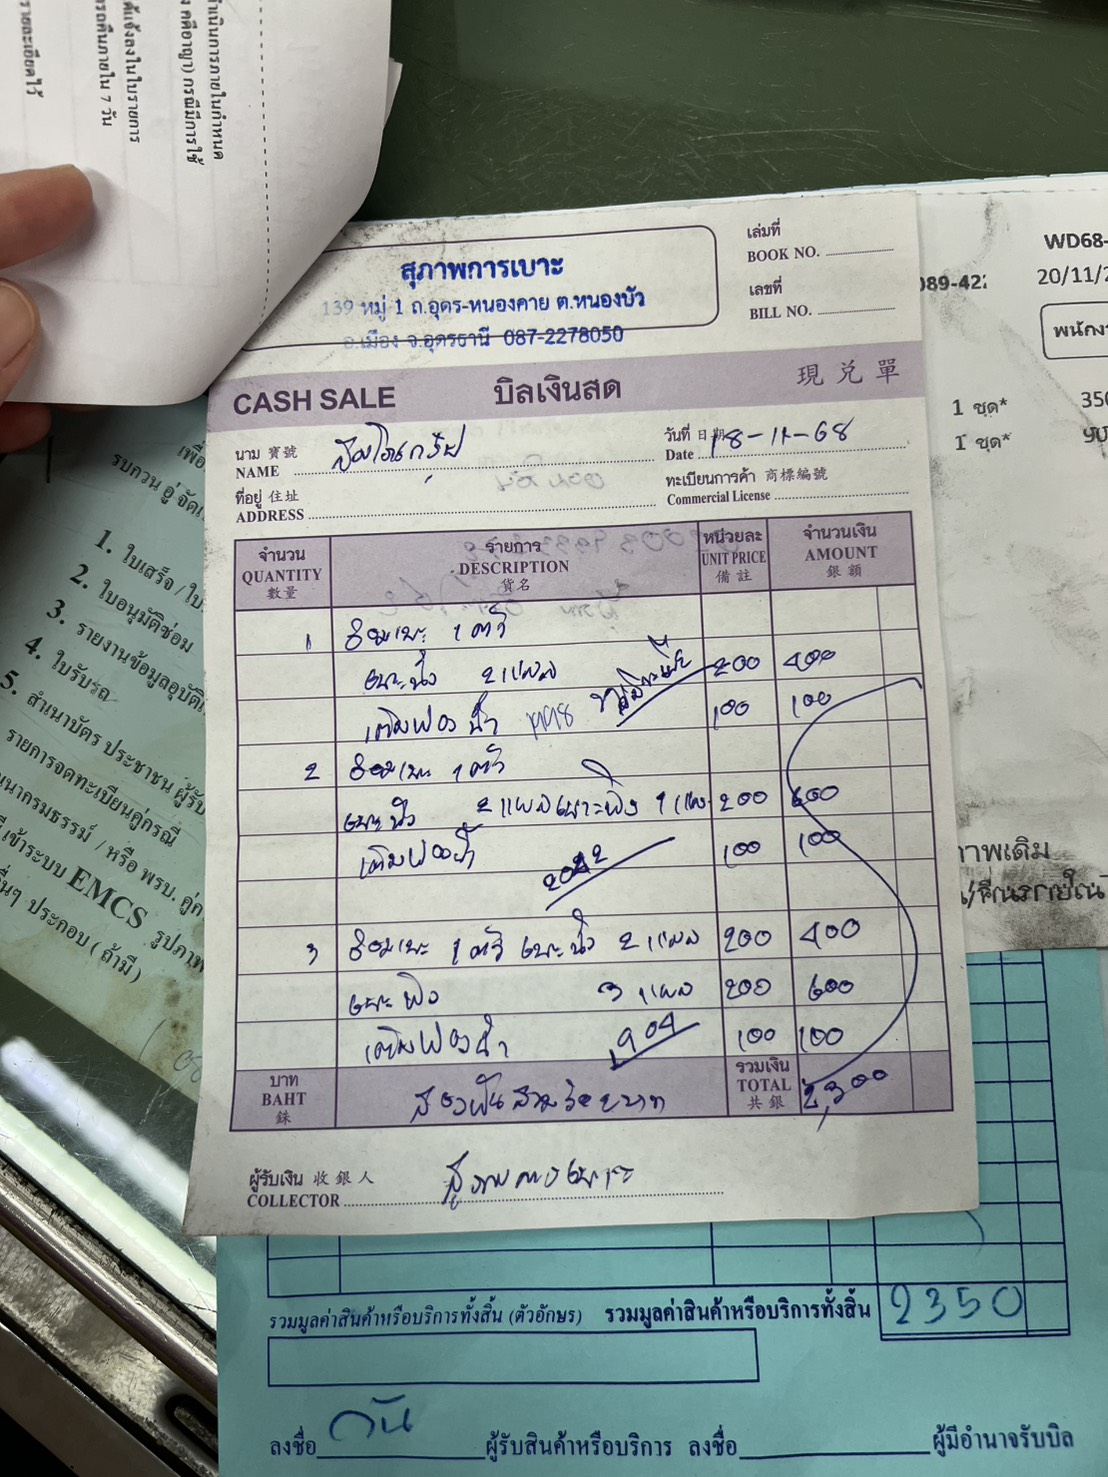 สุภาพการเบาะ
139 หมู่ 1 ถ.อุดร-หนองคาย ต.หนองบัว
อ.เมือง จ.อุดรธานี 087-2278050
เล่มที่
BOOK NO.
เลขที่
BILL NO.
CASH SALE บิลเงินสด 現兌單
นาม 寶號
NAME
วันที่ 日期
Date 18-11-68
ที่อยู่ 住址
ADDRESS
ทะเบียนการค้า 商標編號
Commercial License
จำนวน รายการ หน่วยละ จำนวนเงิน
QUANTITY DESCRIPTION UNIT PRICE AMOUNT
數量 貨名 備註 銀額
1 ซ่อมเบาะ 1 ตัว
เบาะนั่ง 2 แผล 200 400
เติมฟองน้ำ 100 100
2 ซ่อมเบาะ 1 ตัว
เบาะนั่ง 2 แผล เบาะพิง 1 แผล 200 600
เติมฟองน้ำ 100 100
2042
3 ซ่อมเบาะ 1 ตัว เบาะนั่ง 2 แผล 200 400
เบาะพิง 3 แผล 200 600
เติมฟองน้ำ 904 100 100
บาท
BAHT
銖
สองพันสามร้อยบาท
รวมเงิน
TOTAL
共銀
2,300
ผู้รับเงิน 收銀人
COLLECTOR สุภาพการเบาะ
รวมมูลค่าสินค้าหรือบริการทั้งสิ้น (ตัวอักษร) รวมมูลค่าสินค้าหรือบริการทั้งสิ้น 2350
ลงชื่อ ผู้รับสินค้าหรือบริการ ลงชื่อ ผู้มีอำนาจรับบิล
WD68-
089-422
20/11/2
พนักง
1 ชุด* 350
1 ชุด* 900
าพเดิม
1. ใบเสร็จ / ใบ
2. ใบอนุมัติซ่อม
3. รายงานข้อมูลอุบัติเ
4. ใบรับรถ
5. สำเนาบัตร ประชาชน ผู้รับ
รายการจดทะเบียนคู่กรณี
นากรมธรรม์ / หรือ พรบ. คู่ก
เข้าระบบ EMCS รูปภาพ
ื่นๆ ประกอบ ( ถ้ามี )
ำเนินการภายในกำหนด
คดีอาญา) กรณีมีการใช้
ต้แจ้งลงในใบรายการ
รถคืนภายใน 7 วัน
รายละเอียดไว้